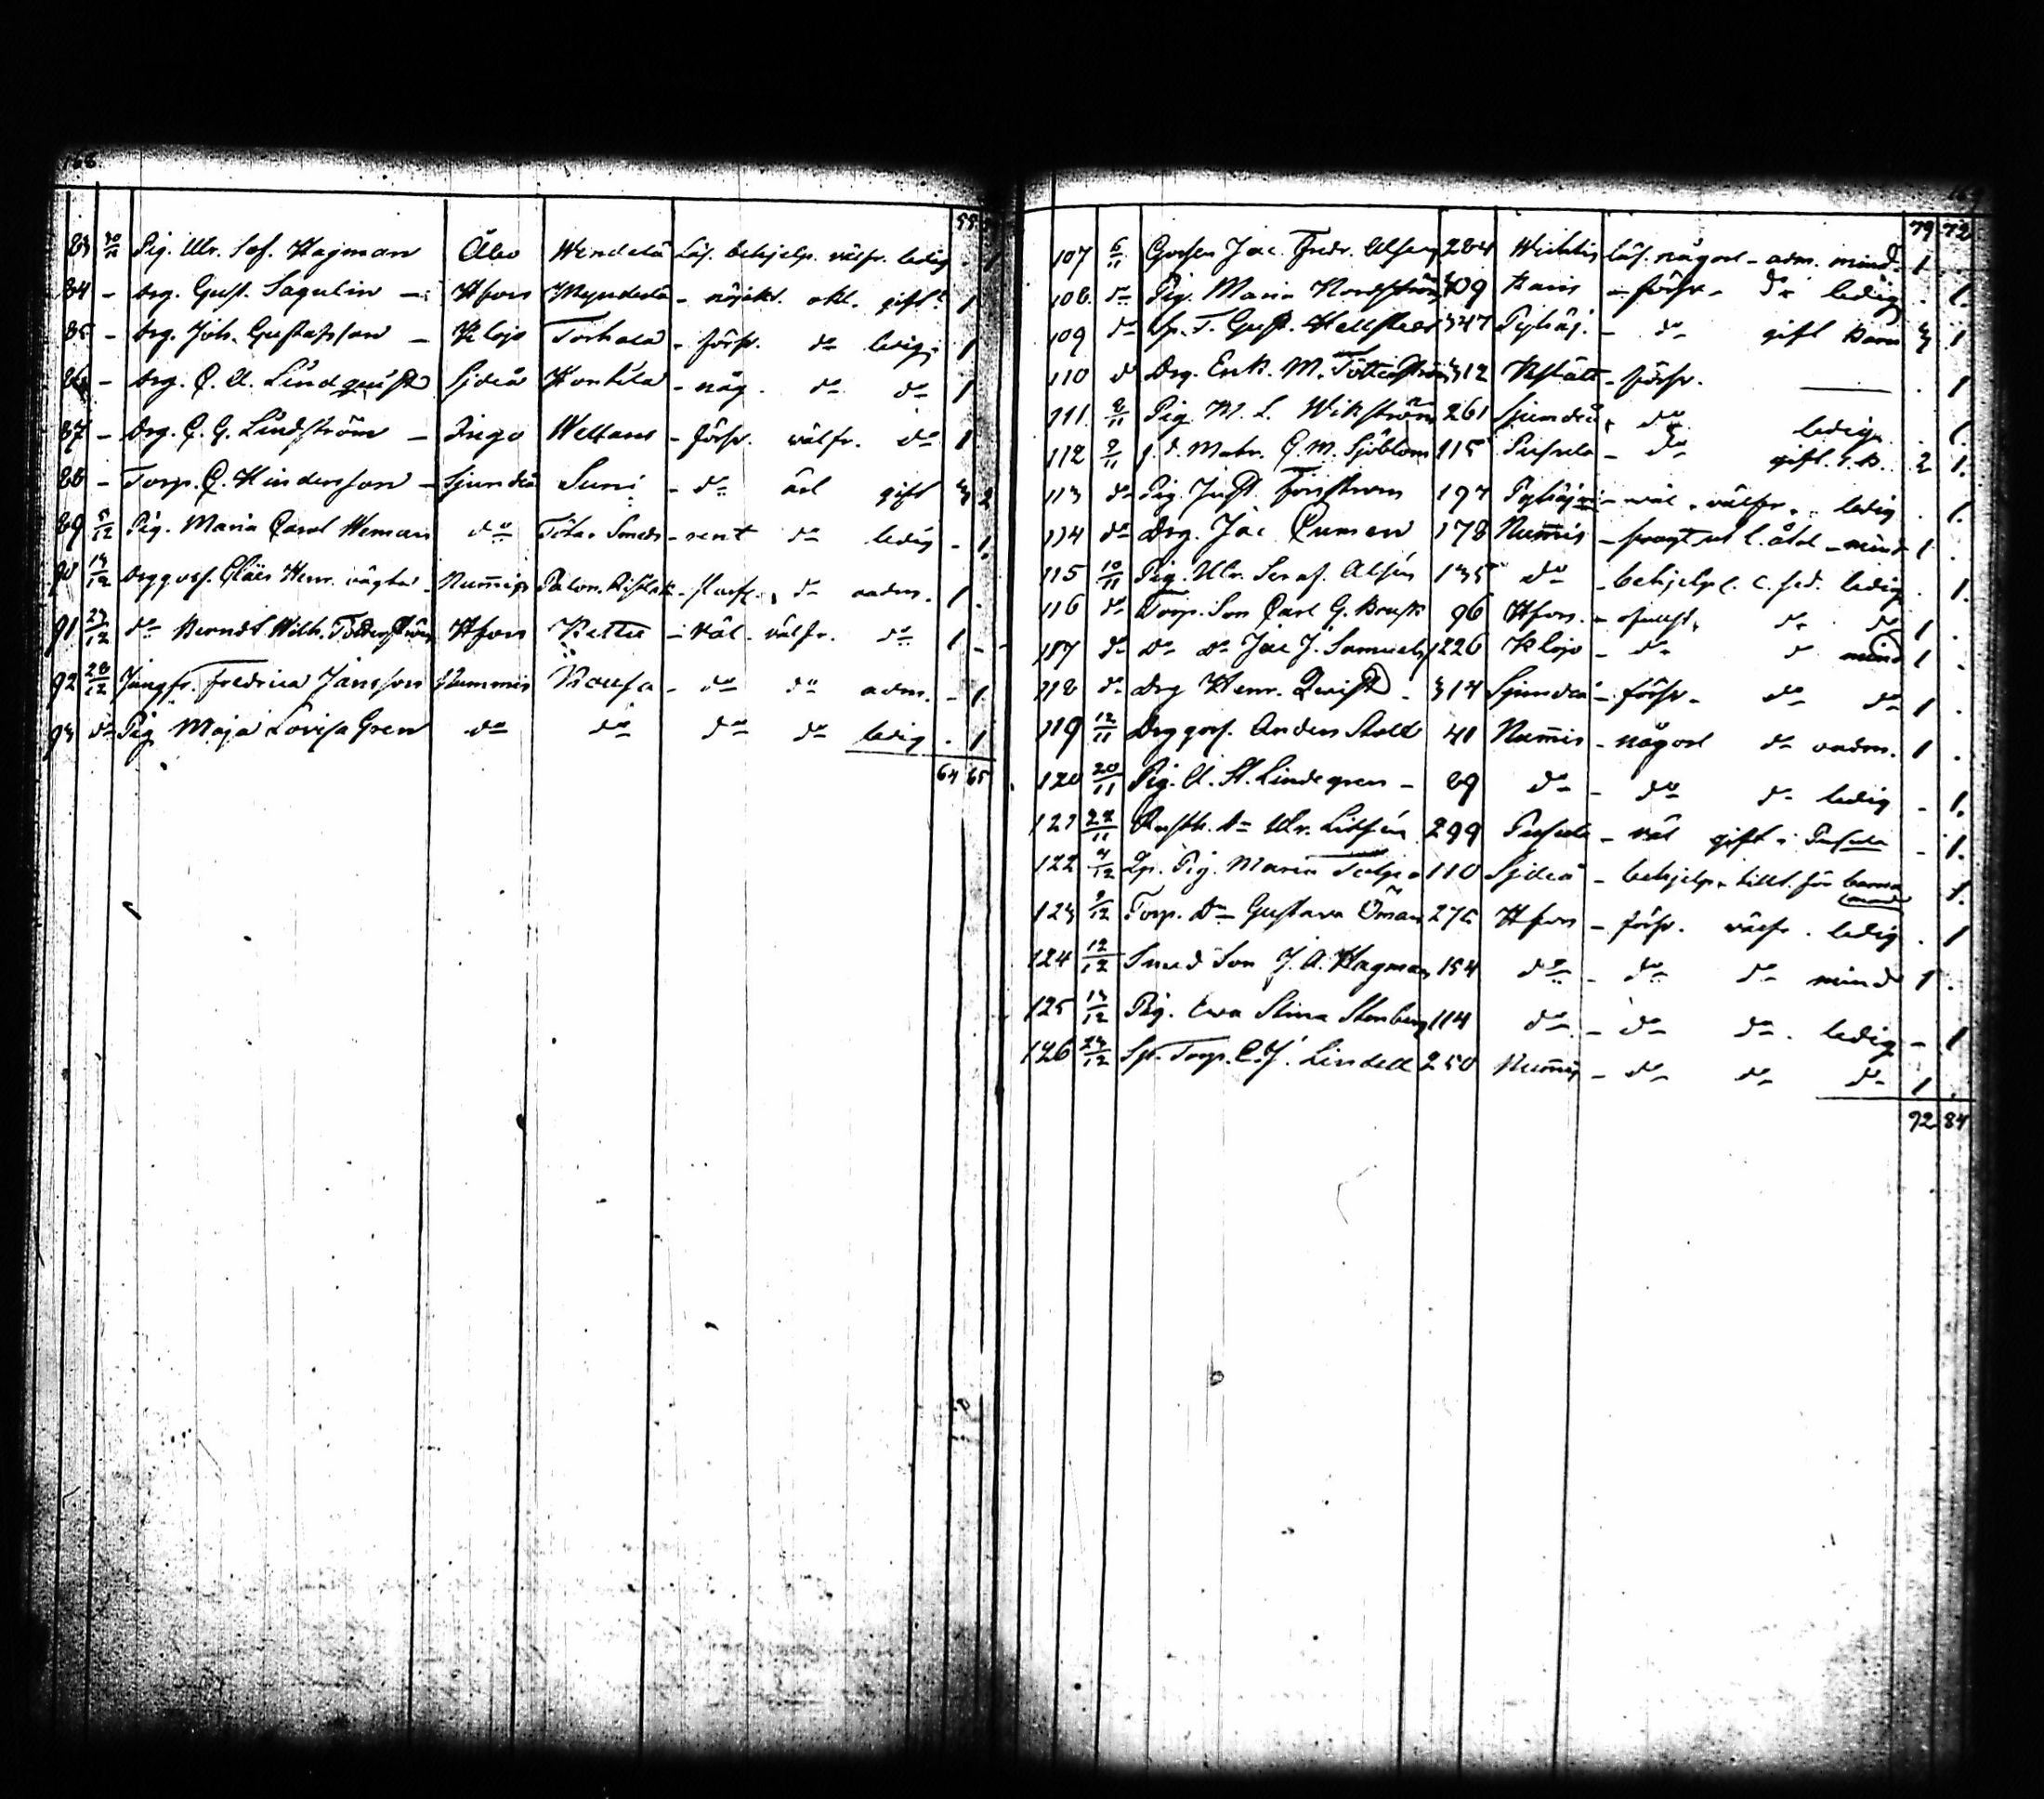 168.
55
83 30/11 Pig. Ulr. Sof. Hagman Åbo Wendelä Läs. behjelp. välfr. ledig - 1
84 - Drg. Gust. Sagulin - Hfors Mynderlä - nöjakt. okl. gift? 1
85 - Drg. Joh. Gustafsson - Klojo Torhola - försv. do ledig 1
86 - Drg. C. A. Lindquist Sjdeå Kontila - någ. do do 1
87 - Drg. C. G. Lindström - Ingo Wellans - försv. välfr. do 1
88 - Torp. C. Hindersson - Sjundeå Suni - do do gift 3 2
89 5/12 Pig. Maria Carol. Heman do Tötar Smeds - rent do ledig - 1.
90 13/12 Drggoss. Claës Henr. Nummis do oadm. 1.
91 23/12 do Berndt Wilh. Totterström Hfors Kettu - väl. välfr. do 1 -
92 28/12 Jungfr. Fredrica Jansson Nummis Rousa - do do adm. - 1.
93 do Pig Maja Lovisa Gren do do do do ledig . 1
64 65
169
79 72
107 6/11 Gossen Jac. Fredr. 284 Wichtis läs. någorl - adm. mind. 1
108. do Pig. Maria Nordström 309 Karis - försv. do ledig . 1.
109 do Sp. T. Gust. Hellsten 347 Pyhäj. - do gift Barn 3 1
110 d Drg. Enk. M. Totterström 312 Kstätt - försv. . 1
111. 8/11 Pig. M. L. Wikström 261 Sjundeå - do ledig . 1.
112 9/11 f. d. Matr. G. M. Sjöblom 115 Pusula - do gift. 2 1.
113 do Pig. Just. Forsström 197 Pyhäj. - väl. välfr. ledig . 1.
114 do Drg. Jac 178 Num̄is - mind 1 .
115 10/11 Pig. Ulr. Seraf. Alsén 135 do - behjelpl. ledig . 1.
116 do Torp. Son Carl G. 96 Hfors. - do do 1 .
117 do do do Jac J. Samuels. 226 Klojo - do d mind 1 -
118 do Drg Henr. Qvist - 314 Sjundeå - försv. do do 1 .
119 12/11 Drggoss. Anders Stoll 41 Num̄is - någorl do oadm. 1 .
120 20/11 Pig. A. St. Lindegren - 89 do - do do ledig - 1.
121 22/11 Rusth. Dr Ulr. Litsén 299 Pusula - väl gift i Pusula - 1.
122 4/12 Qp. Pig. Maria 110 Sjdeå - behjelp. tillt. för barna 1.
123 9/12 Torp. Dr Gustava Öman 275 Hfors - försv. välfr. ledig . 1
124 12/12 Smed Son J. A. Hagman 154 do - do do mind 1 .
125 13/12 Pig. Eva Stina Stenberg 114 do - do do. ledig - 1
126 23/12 Sp. Torp. C. J. Lindell 250 Num̄is - do do do 1 .
92 84